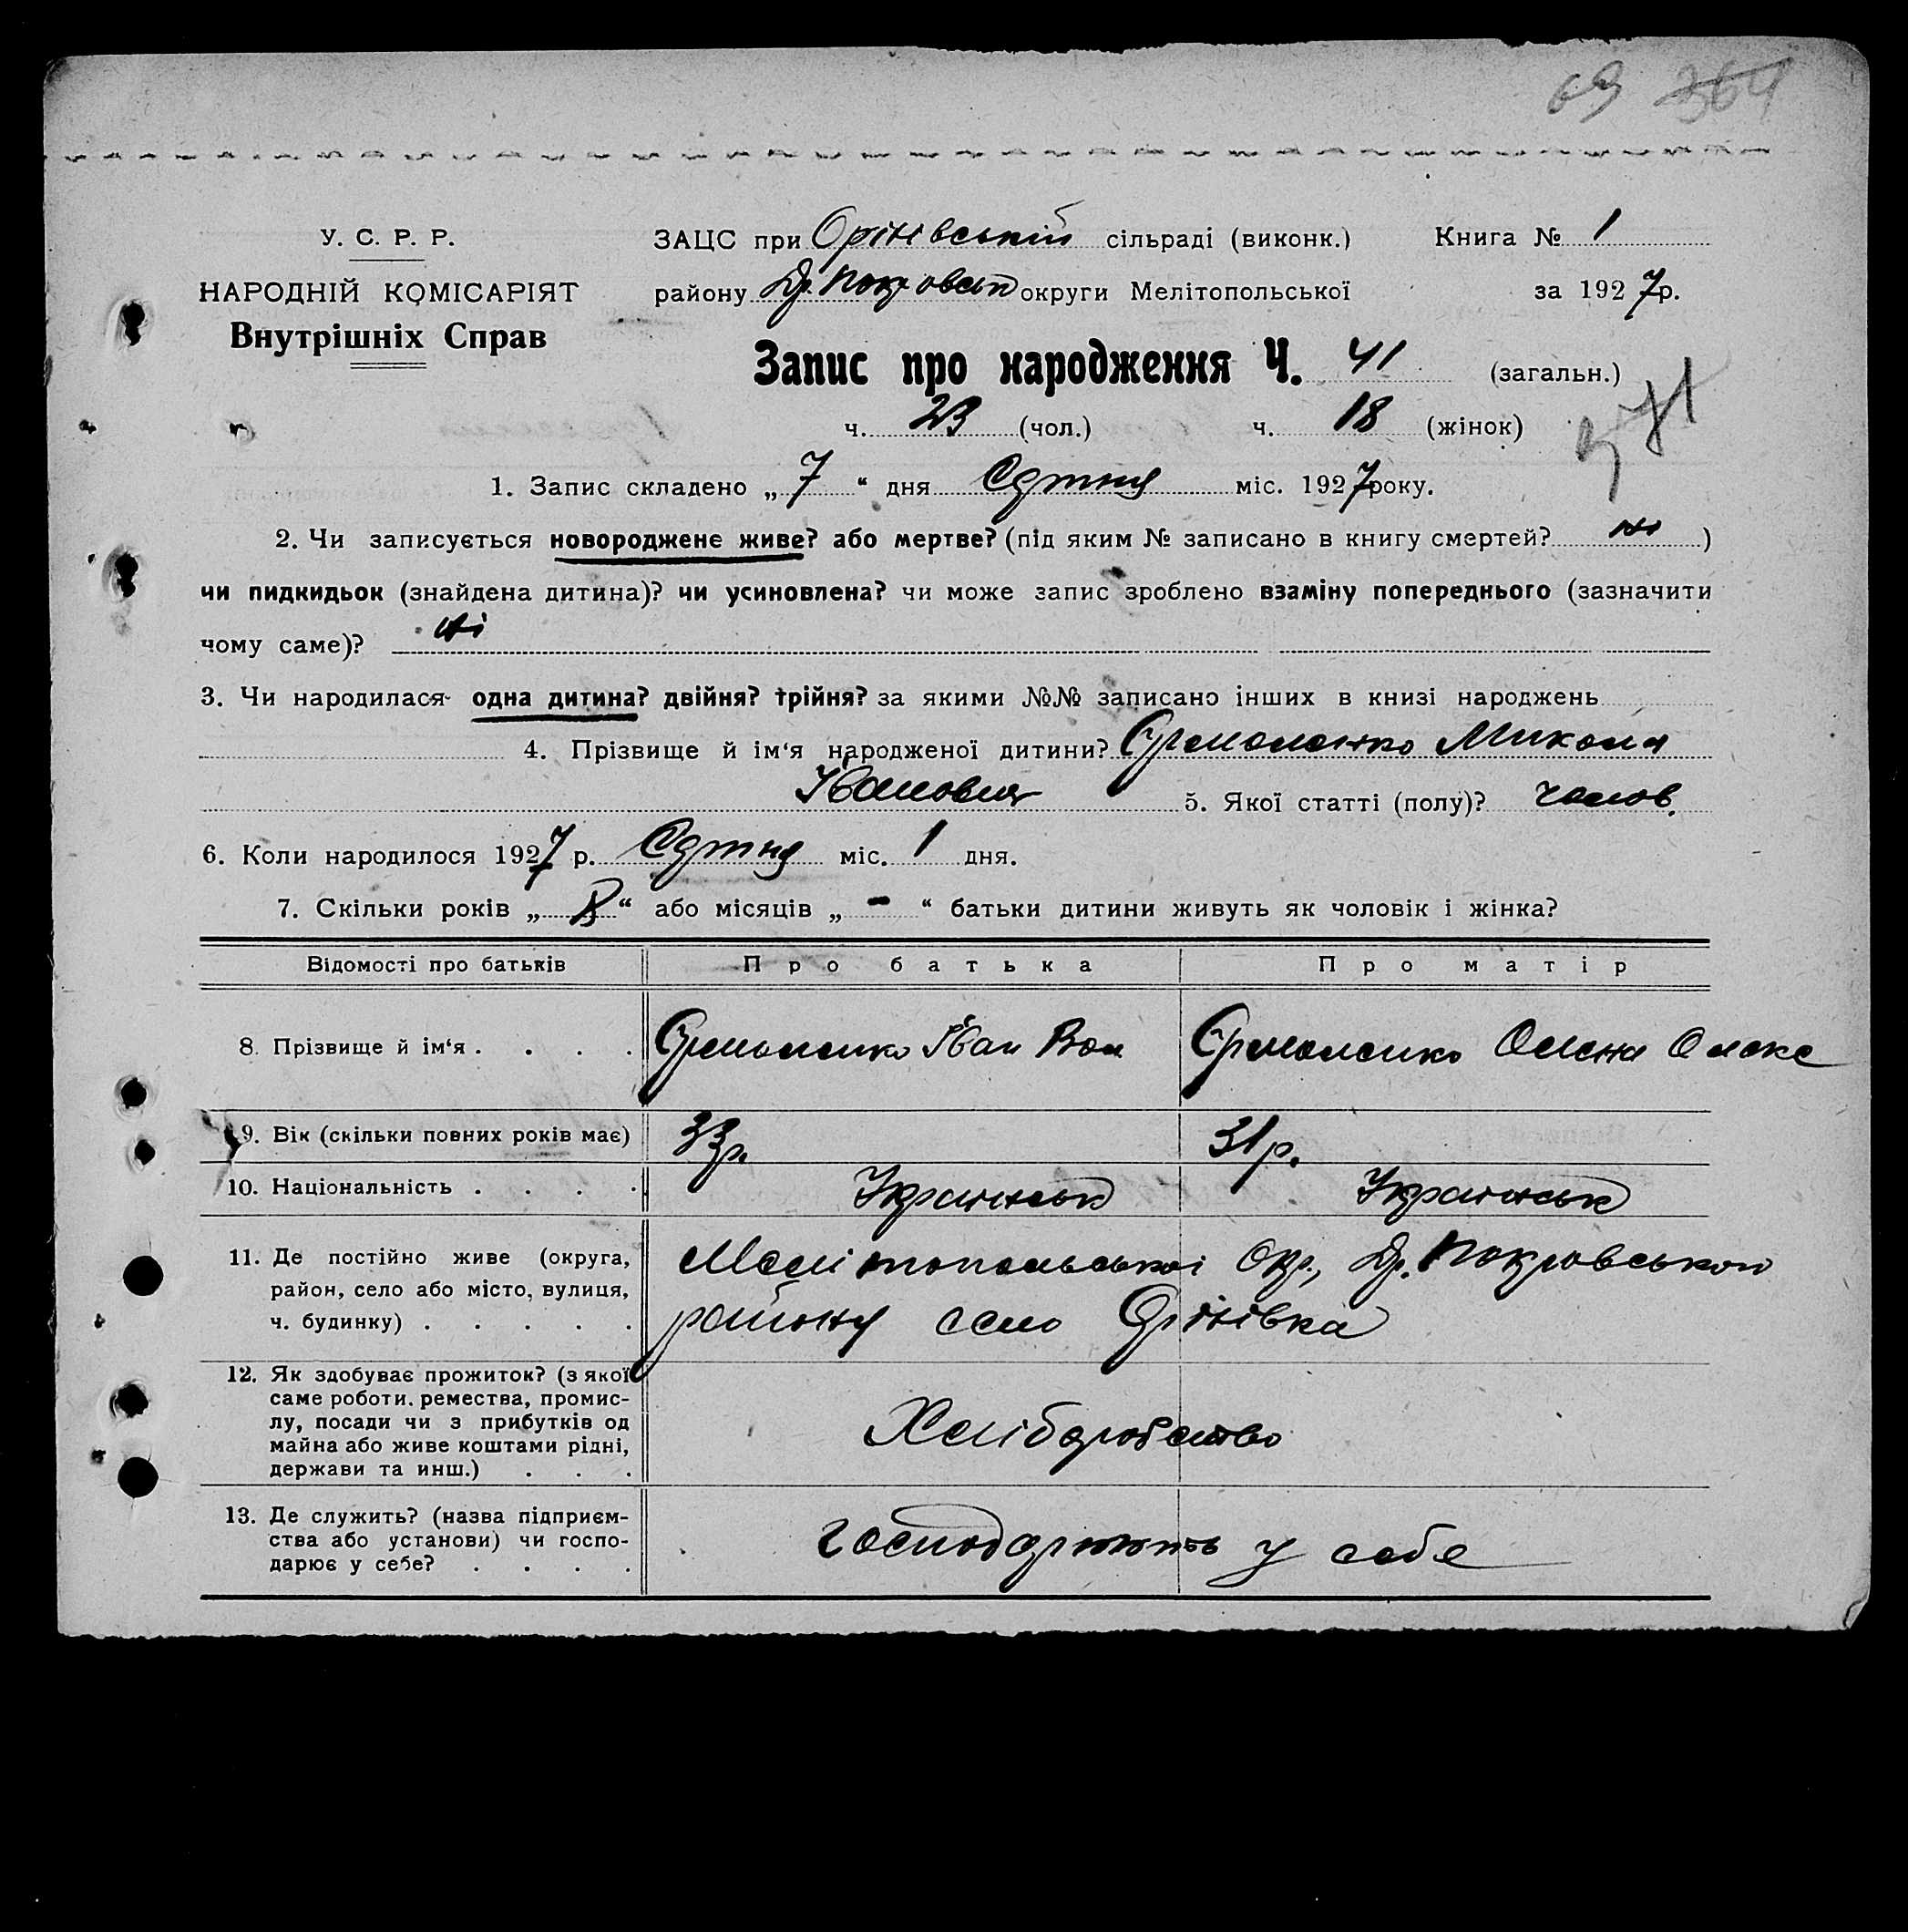 69 364
У. С. Р. Р.
НАРОДНІЙ КОМІСАРІЯТ
Внутрішніх Справ
ЗАЦС при Орінівській сільраді (виконк.) Книга № 1
району Др. Покровськ округи Мелітопольської за 1927р.
Запис про народження Ч. 41 (загальн.)
ч. 23 (чол.) ч. 18 (жінок)
1. Запис складено „ 7 “ дня міс. 1927 року.
2. Чи записується новороджене живе? або мертве? (під яким № записано в книгу смертей? ні )
чи пидкидьок (знайдена дитина)? чи усиновлена? чи може запис зроблено взаміну попереднього (зазначити
чому саме)? ні
3. Чи народилася одна дитина? двійня? трійня? за якими №№ записано інших в книзі народжень
4. Прізвище й ім‘я народженої дитини? Єрмоленко Микола
Іванович 5. Якої статті (полу)? чолов.
6. Коли народилося 1927 р. міс. 1 дня.
7. Скільки років „ “ або місяців „ - “ батьки дитини живуть як чоловік і жінка?
Відомості про батьків Про батька Про матір
8. Прізвище й ім‘я . . . . Єрмоленко Іван Єрмоленко Олена Олекс
9. Вік (скільки повних років має) 33р. 31р.
10. Національність . . . . Українськ Українськ
11. Де постійно живе (округа, Мелітопольської окр., Др. Покровського
район, село або місто, вулиця, району село Орінівка
ч. будинку) . . . . .
12. Як здобуває прожиток? (з якої
саме роботи. ремества, промис-
лу, посади чи з прибутків од Хліборобство
майна або живе коштами рідні,
держави та инш.) . . .
13. Де служить? (назва підприєм-
ства або установи) чи госпо- господарюють у себе
дарює у себе? . . . .